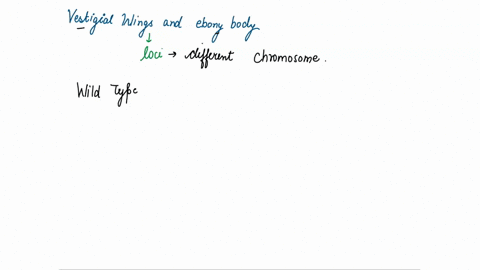 Vestigial Wings and ebony body
loci → different Chromosome.
Wild Type